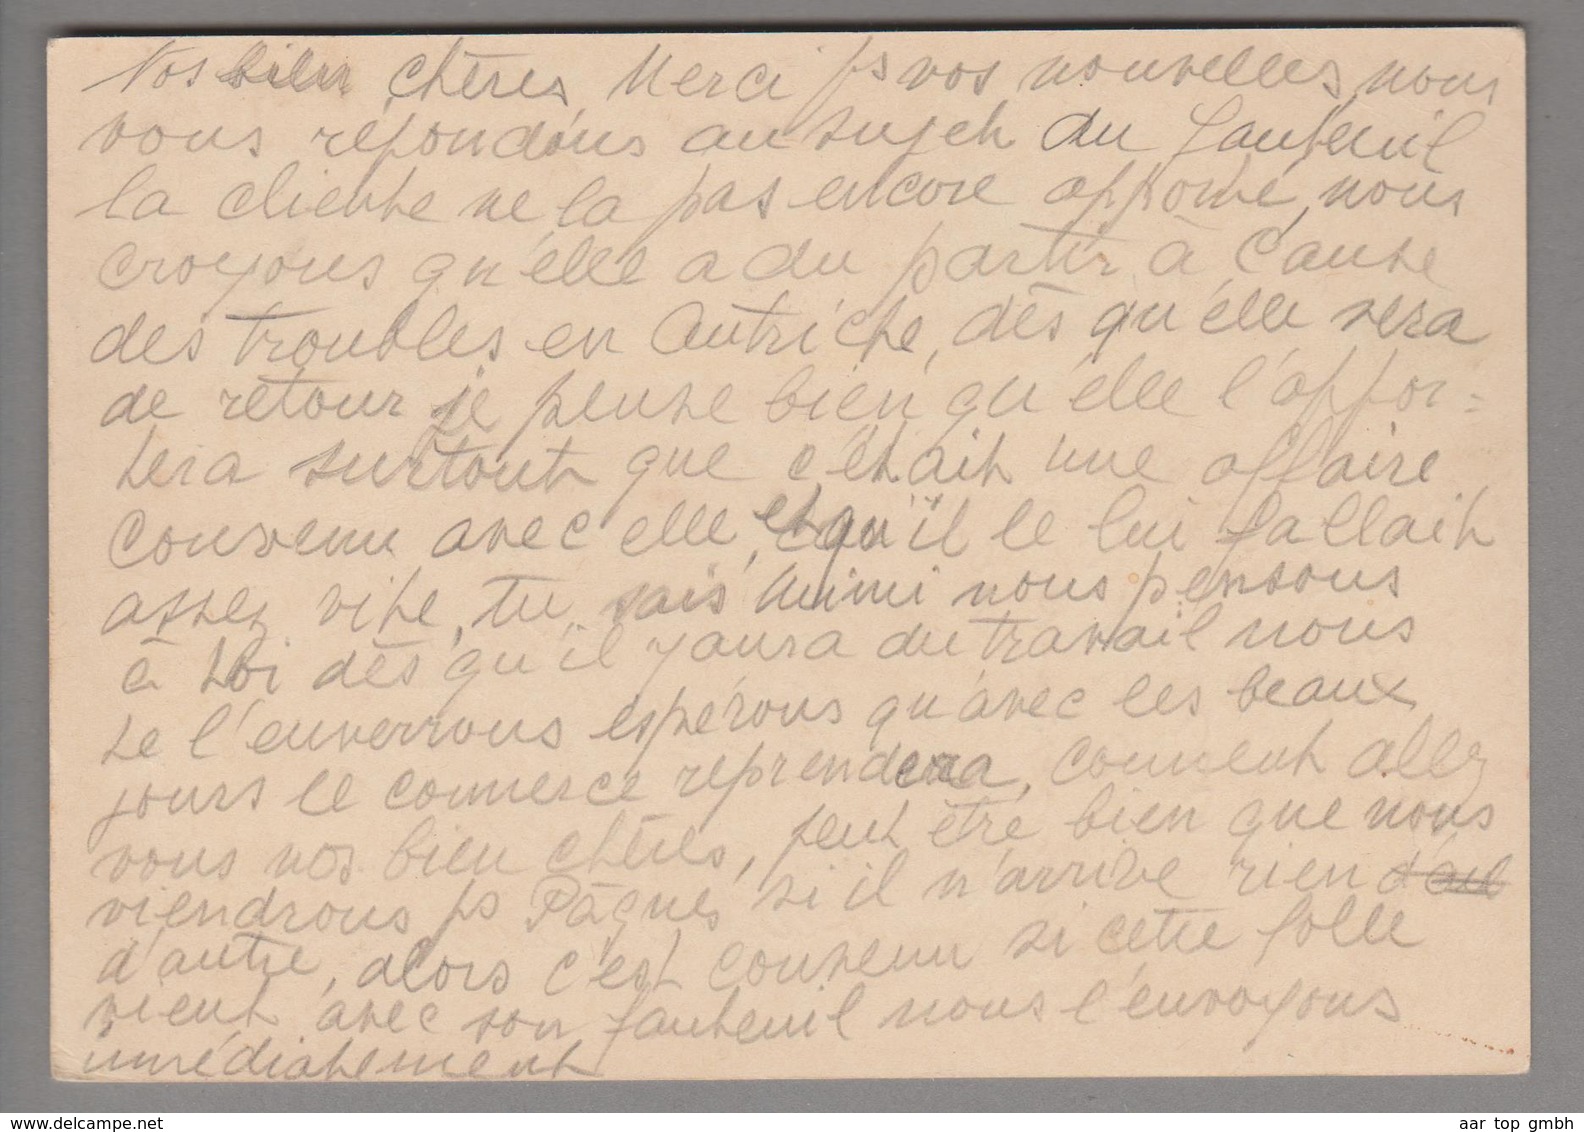 Nos bien chères, Merci ps vos nouvelles, nous
vous répondons au sujet du fauteuil
la cliente ne la pas encore apporté, nous
croyons qu'elle a du partir à cause
des troubles en Autriche, dès qu'elle sera
de retour je pense bien qu'elle l'appor=
tera surtout que c'était une affaire
convenu avec elle, et qu'il le lui fallait
assez vite, tu sais Mimi nous pensons
à toi dès qu'il y aura du travail nous
te l'enverrons espérons qu'avec les beaux
jours le commerce reprendera, comment allez
vous nos bien chères, peut être bien que nous
viendrons ps Pâques, si il n'arrive rien
d'autre, alors c'est convenu si cette folle
vient avec son fauteuil nous l'envoyons
immédiatement
www.delcampe.net
aar top gmbh